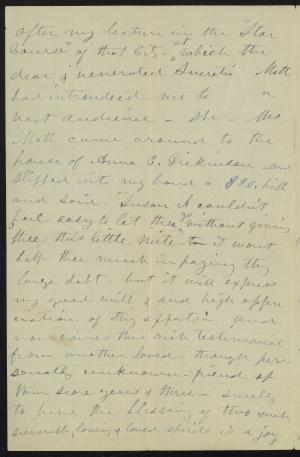 after my lecture in the "Star
Course" of that City - at which the
dear & venerated Lucretia Mott
had introduced me to a
vast audience - she - Mrs
Mott came around to the
house of Anna E. Dickinson and
slipped into my hand a $20. bill
and said - "Susan I couldn't
feel easy to let thee go without giving
thee this little mite - it wont
help thee much in paying thy
large debt - but it will express
my good will & and high appre-
ciation of thy efforts" And
now comes this rich testimonial
from another loved - though per-
sonally unknown - friend of
three score years & three - surely
to have the blessing of two such
venerable, loving & loved spirits is a joy